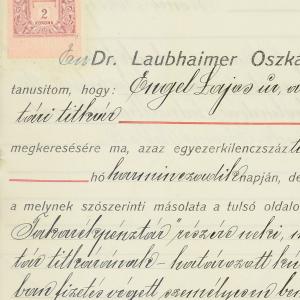 2
KORONA
Én Dr. Laubhaimer Oszká
tanusitom, hogy: Engel Lajos úr, a
tári titkár
megkeresésére ma, azaz egyezerkilenczszáz
hó harminczadik napján, de
a melynek szószerinti másolata a tulsó oldalo
Takarékpénztár" részére neki, m
tár titkárának – határozott ki
ban fizetés végett személyesen be